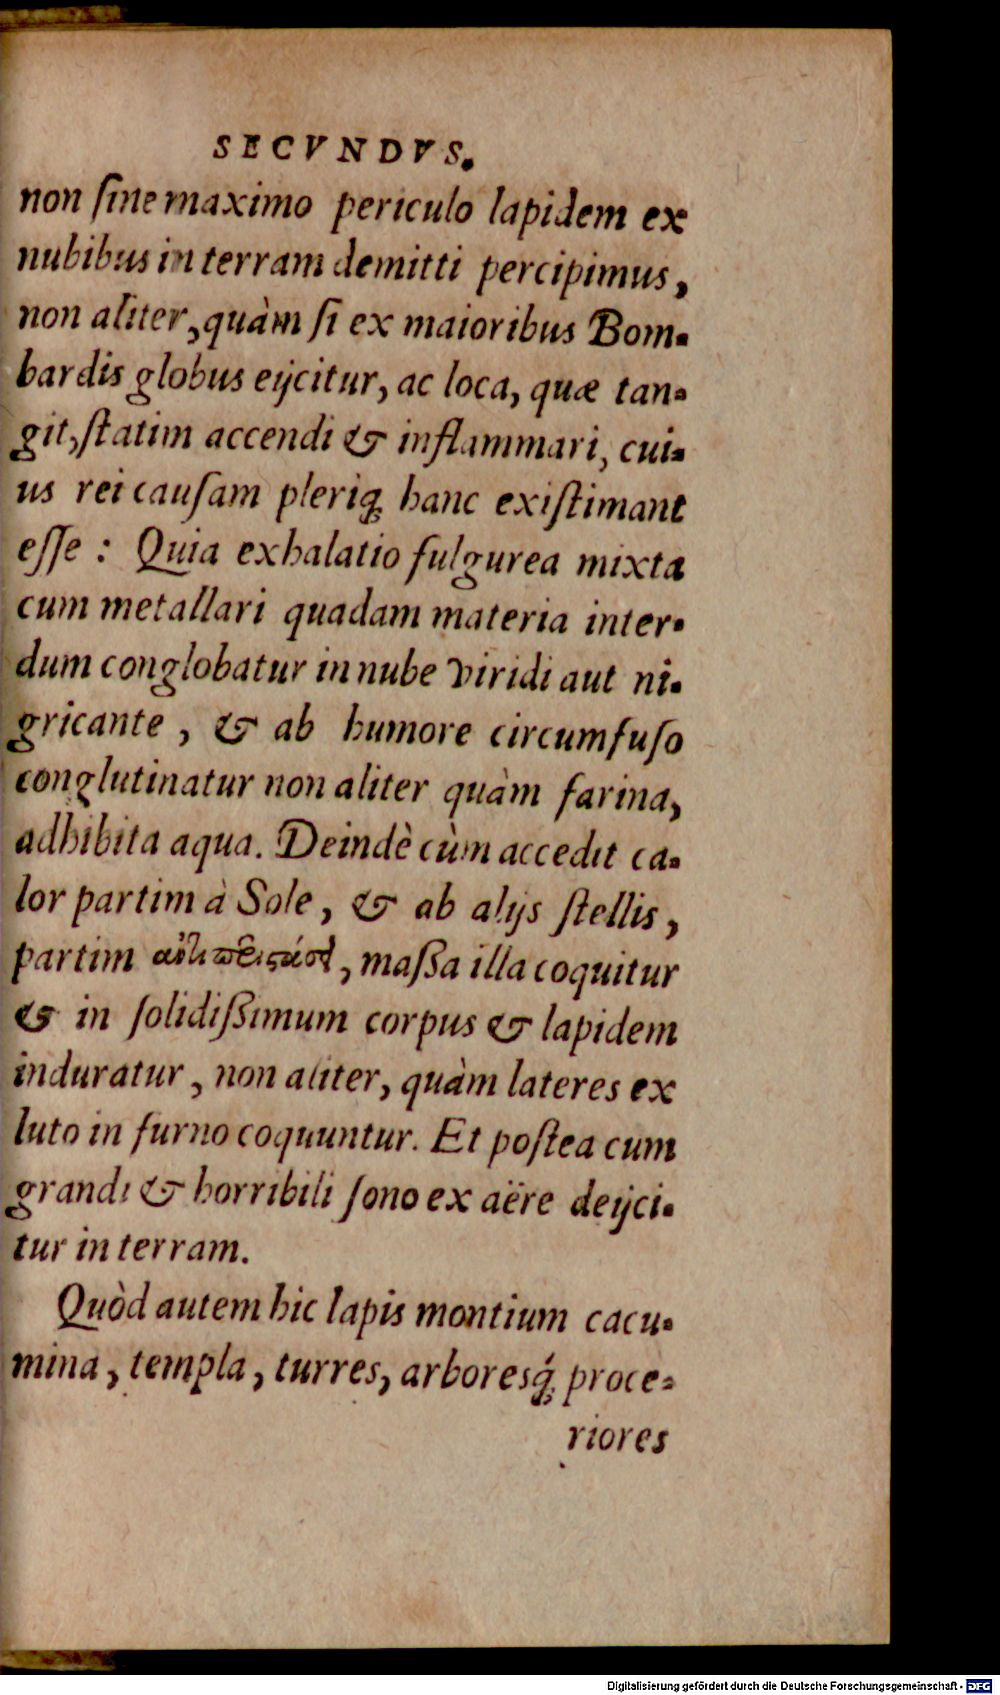 SECVNDVS.
non ſine maximo periculo lapidem ex
nubibus in terram demitti percipimus,
non aliter, quàm ſi ex maioribus Bom-
bardis globus eijcitur, ac loca, quæ tan-
git, ſtatim accendi & inflammari, cui-
us rei cauſam pleriq; hanc exiſtimant
eſſe : Quia exhalatio fulgurea mixta
cum metallari quadam materia inter-
dum conglobatur in nube viridi aut ni-
gricante, & ab humore circumfuſo
conglutinatur non aliter quàm farina,
adhibita aqua. Deindè cùm accedit ca-
lor partim à Sole, & ab alijs ſtellis,
partim , maßa illa coquitur
& in ſolidißimum corpus & lapidem
induratur, non aliter, quàm lateres ex
luto in furno coquuntur. Et poſtea cum
grandi & horribili ſono ex aëre deijci-
tur in terram.
Quòd autem hic lapis montium cacu-
mina, templa, turres, arboresq́; proce-
riores
Digitalisierung gefördert durch die Deutsche Forschungsgemeinschaft - DFG